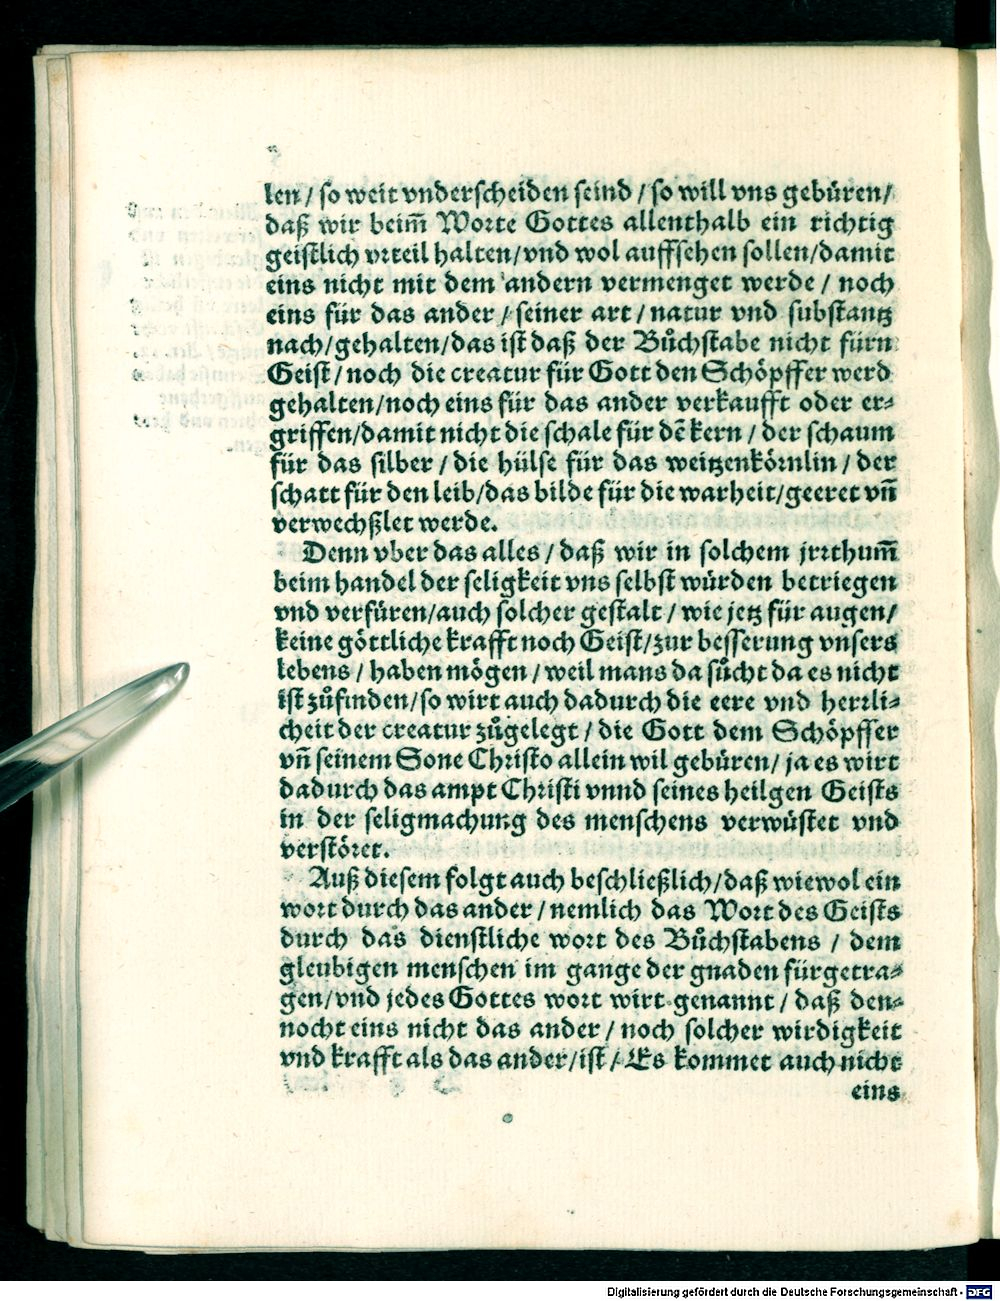 len / so weit vnderscheiden seind / so will vns gebüren /
daß wir beim̃ Worte Gottes allenthalb ein richtig
geistlich vrteil halten / vnd wol auffsehen sollen / damit
eins nicht mit dem andern vermenget werde / noch
eins für das ander / seiner art / natur vnd substantz
nach / gehalten / das ist daß der Bůchstabe nicht fürn
Geist / noch die creatur für Gott den Schöpffer werd
gehalten / noch eins für das ander verkaufft oder er⸗
griffen / damit nicht die schale für dẽ kern / der schaum
für das silber / die hülse für das weitzenkörnlin / der
schatt für den leib / das bilde für die warheit / geeret vñ
verwechßlet werde.
Denn vber das alles / daß wir in solchem jrrthum̃
beim handel der seligkeit vns selbst würden betriegen
vnd verfüren / auch solcher gestalt / wie jetz für augen /
keine göttliche krafft noch Geist / zur besserung vnsers
lebens / haben mögen / weil mans da sůcht da es nicht
ist zůfinden / so wirt auch dadurch die eere vnd herrli⸗
cheit der creatur zůgelegt / die Gott dem Schöpffer
vñ seinem Sone Christo allein wil gebüren / ja es wirt
dadurch das ampt Christi vnnd seines heilgen Geists
in der seligmachung des menschens verwüstet vnd
verstöret.
Auß diesem folgt auch beschließlich / daß wiewol ein
wort durch das ander / nemlich das Wort des Geists
durch das dienstliche wort des Bůchstabens / dem
gleubigen menschen im gange der gnaden fürgetra⸗
gen / vnd jedes Gottes wort wirt genannt / daß den⸗
nocht eins nicht das ander / noch solcher wirdigkeit
vnd krafft als das ander / ist / Es kommet auch nicht
eins
Digitalisierung gefördert durch die Deutsche Forschungsgemeinschaft - DFG